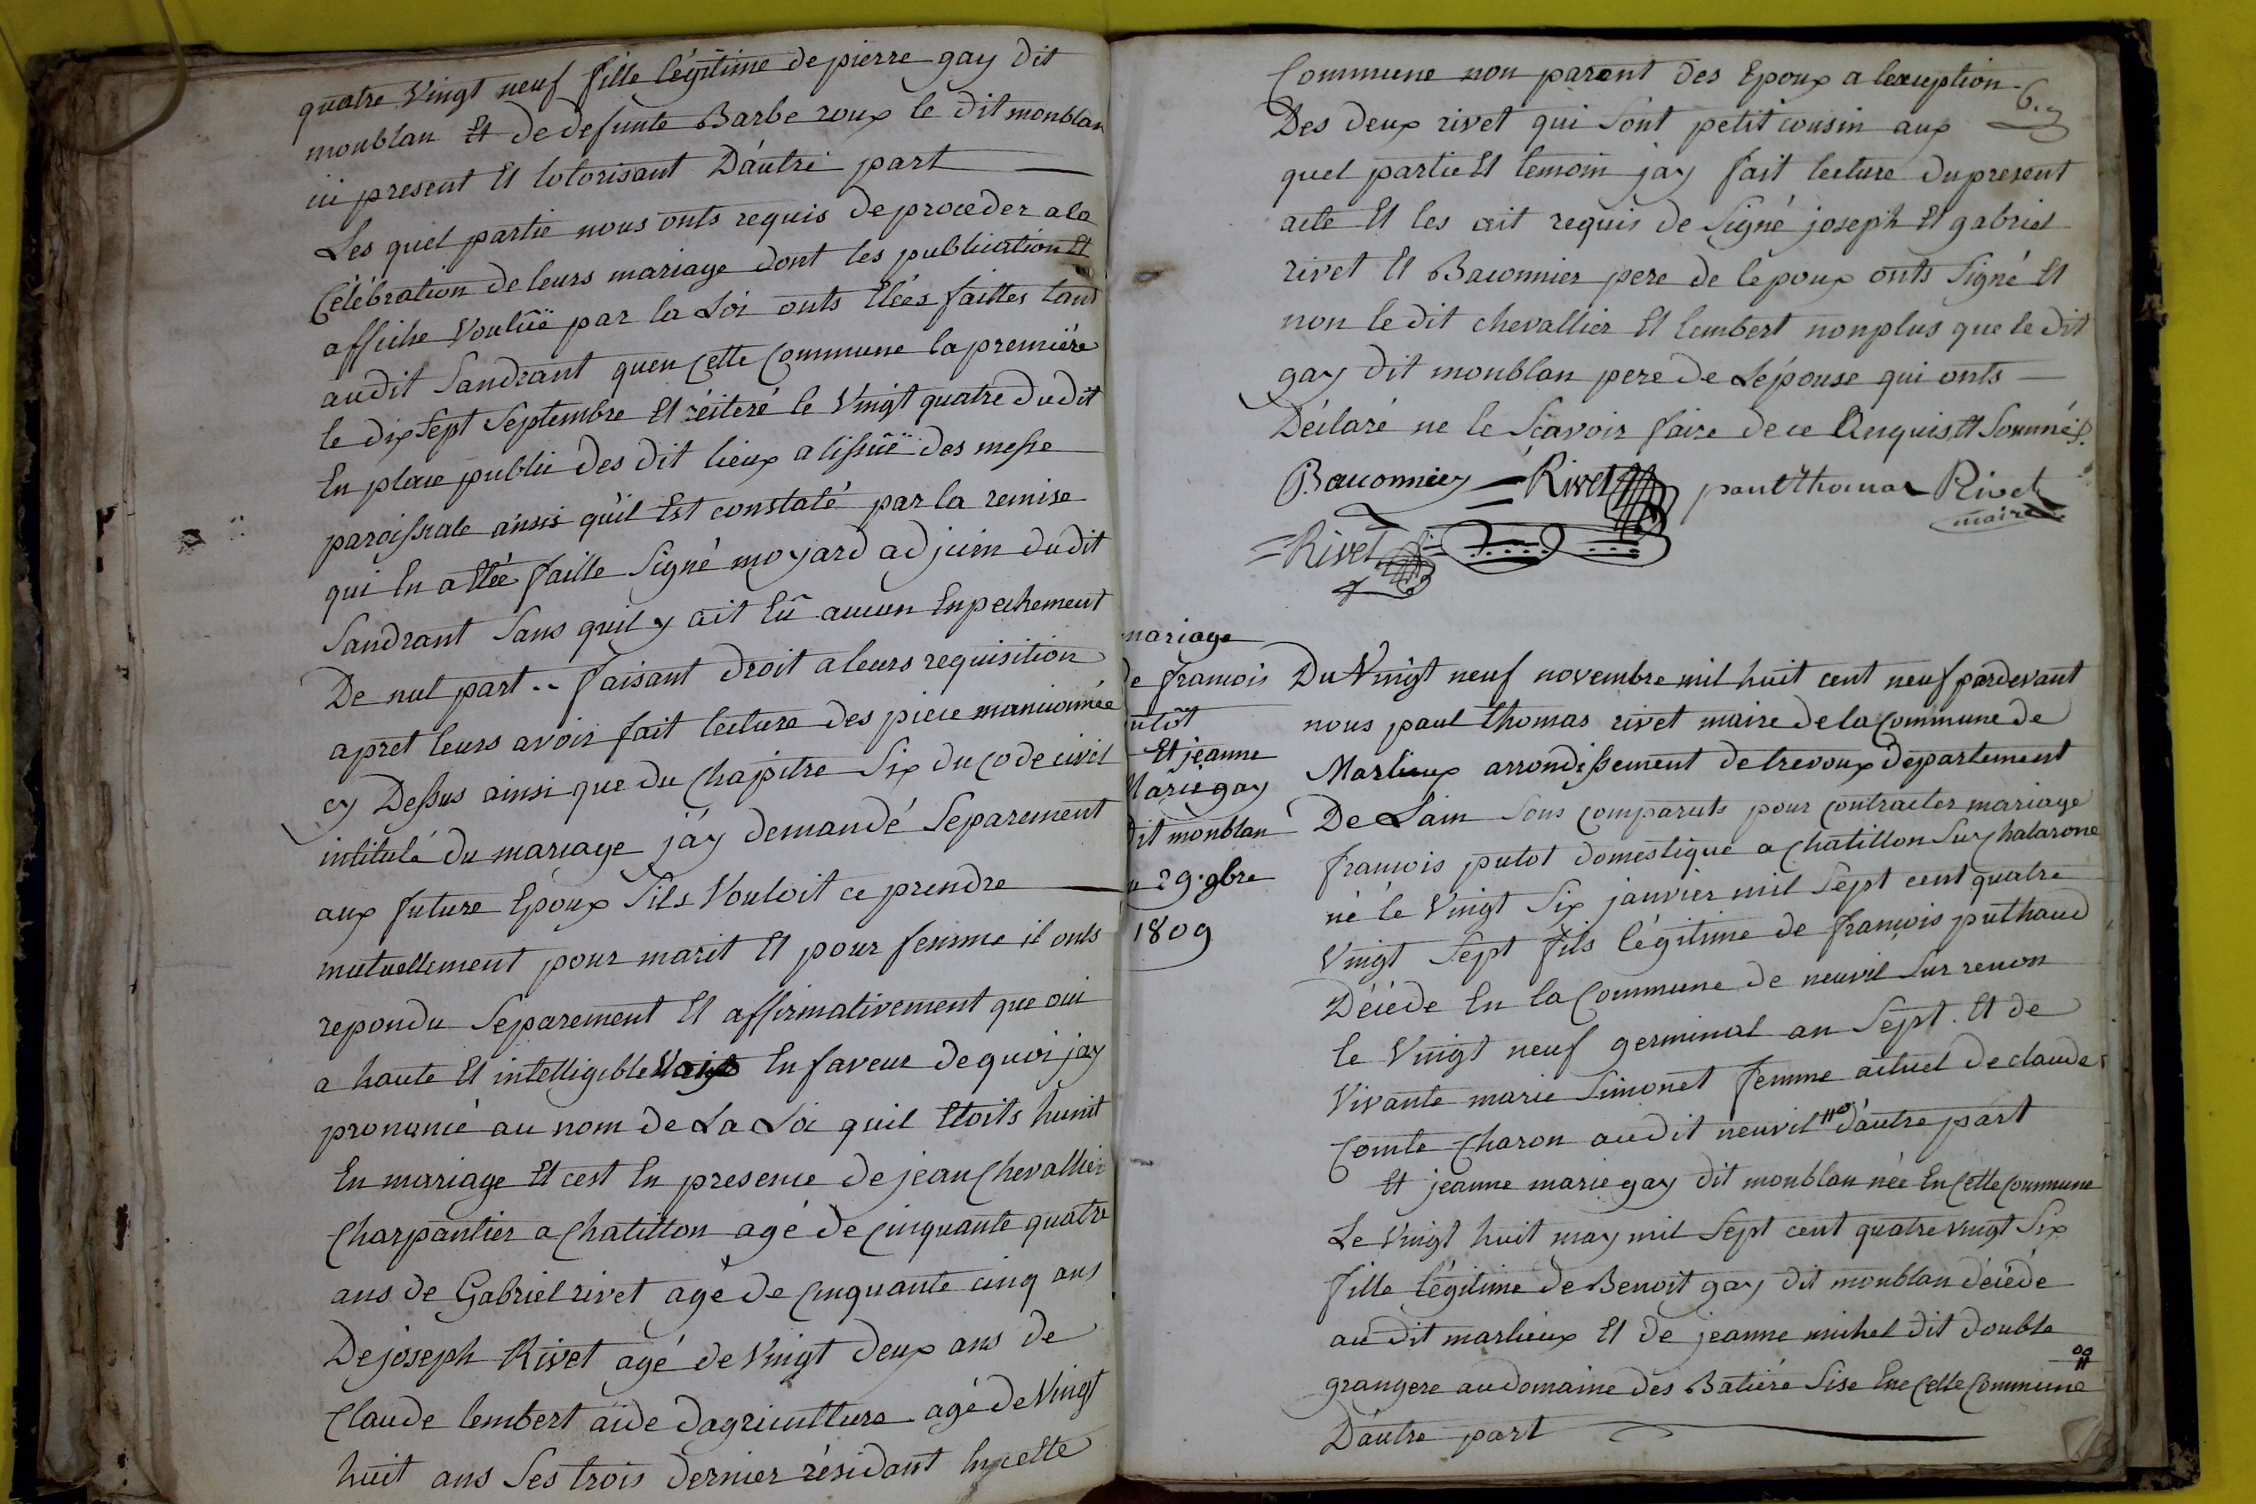 quatre vingt neuf fille légitime de pierre gay dit
monblan Et de defunte Barbe roux le dit monblan
ici present Et lotorisant Dáutre part
Les quel partie nous onts requis de proceder a la
Célébration de leurs mariage dont les publication Et
affiche Voulûë par la Loi onts Etées faittes tans
audit Sandrant quen Cette Commune la premiére
le dix Sept Septembre Et réiteré le Vingt quatre du dit
En place public des dit lieux a lissûë des messe
paroissiale ainsi qúil Est constaté par la remise
qui En a Etée faitte Signé moyard adjoin du dit
Sandrant Sans quil y ait Eû aucun Enpechement
De nul part .. faisant droit a leurs requisition
apret leurs avoir fait lecture des piece mancionnée
cy Dessus ainsi que du Chapitre Six du Code civil
intitulé du mariage j'áy demandé Séparement
aux future Epoux Sils Vouloit ce prendre
mutuellement pour marit Et pour femme il onts
repondu Séparement Et affirmativement que oui
a haute Et intelligible Voix En faveur de quoi jay
prononcé au nom de La Loi quil Etoits hunit
En mariage Et cest En presence de jean Chevallier
Charpantier a Chatillon agé de Cinquante quatre
ans de Gabriel rivet agé de Cinquante cinq ans
De joseph Rivet agé de Vingt deux ans de
Claude lembert aide dagriculture agé de Vingt
huit ans Ses trois dernier résidant En cette
Commune non parent des Epoux a lexception
6.
Des deux rivet qui Sont petit cousin aux
quel partie Et temoin jay fait lecture du present
acte Et les ait requis de Signé joseph Et gabriel
rivet Et Baconnier pere de lépoux onts Signé Et
non le dit chevallier Et lembert nonplus que le dit
gay dit monblan pere de Lépouse qui onts
Déclaré ne le Scavoir faire de ce Enquis Et Sommés.
Bauconnier = Rivet paul thomas Rivet
maire
= Rivet
mariage
de francois
utôt
Et jeanne
Marie gay
dit monblan
29. 9bre
1809
Du Vingt neuf novembre mil huit cent neuf pardevant
nous paul thomas rivet maire de la Commune de
Marlieux arrondissement de trevoux département
De Lain Sons comparuts pour contracter mariage
francois putot domestique a Chatillon Sur Chalarone
né le Vingt Six janvier mil Sept cent quatre
Vingt Sept fils légitime de françois puthaud
Décéde En la Commune de neuvil Sur renon
le Vingt neuf germinal an Sept. Et de
Vivante marie Simonet femme actuel de claude
Comte Charon audit neuvil dáutre part
Et jeanne marie gay dit monblan née En Cette Commune
Le Vingt huit may mil Sept cent quatre vingt Six
fille légitime de Benoit gay dit monblan décéde
au dit marlieux Et de jeanne michel dit double
grangere au domaine des Batiére Sise Ene Cette Commune
Dáutre part